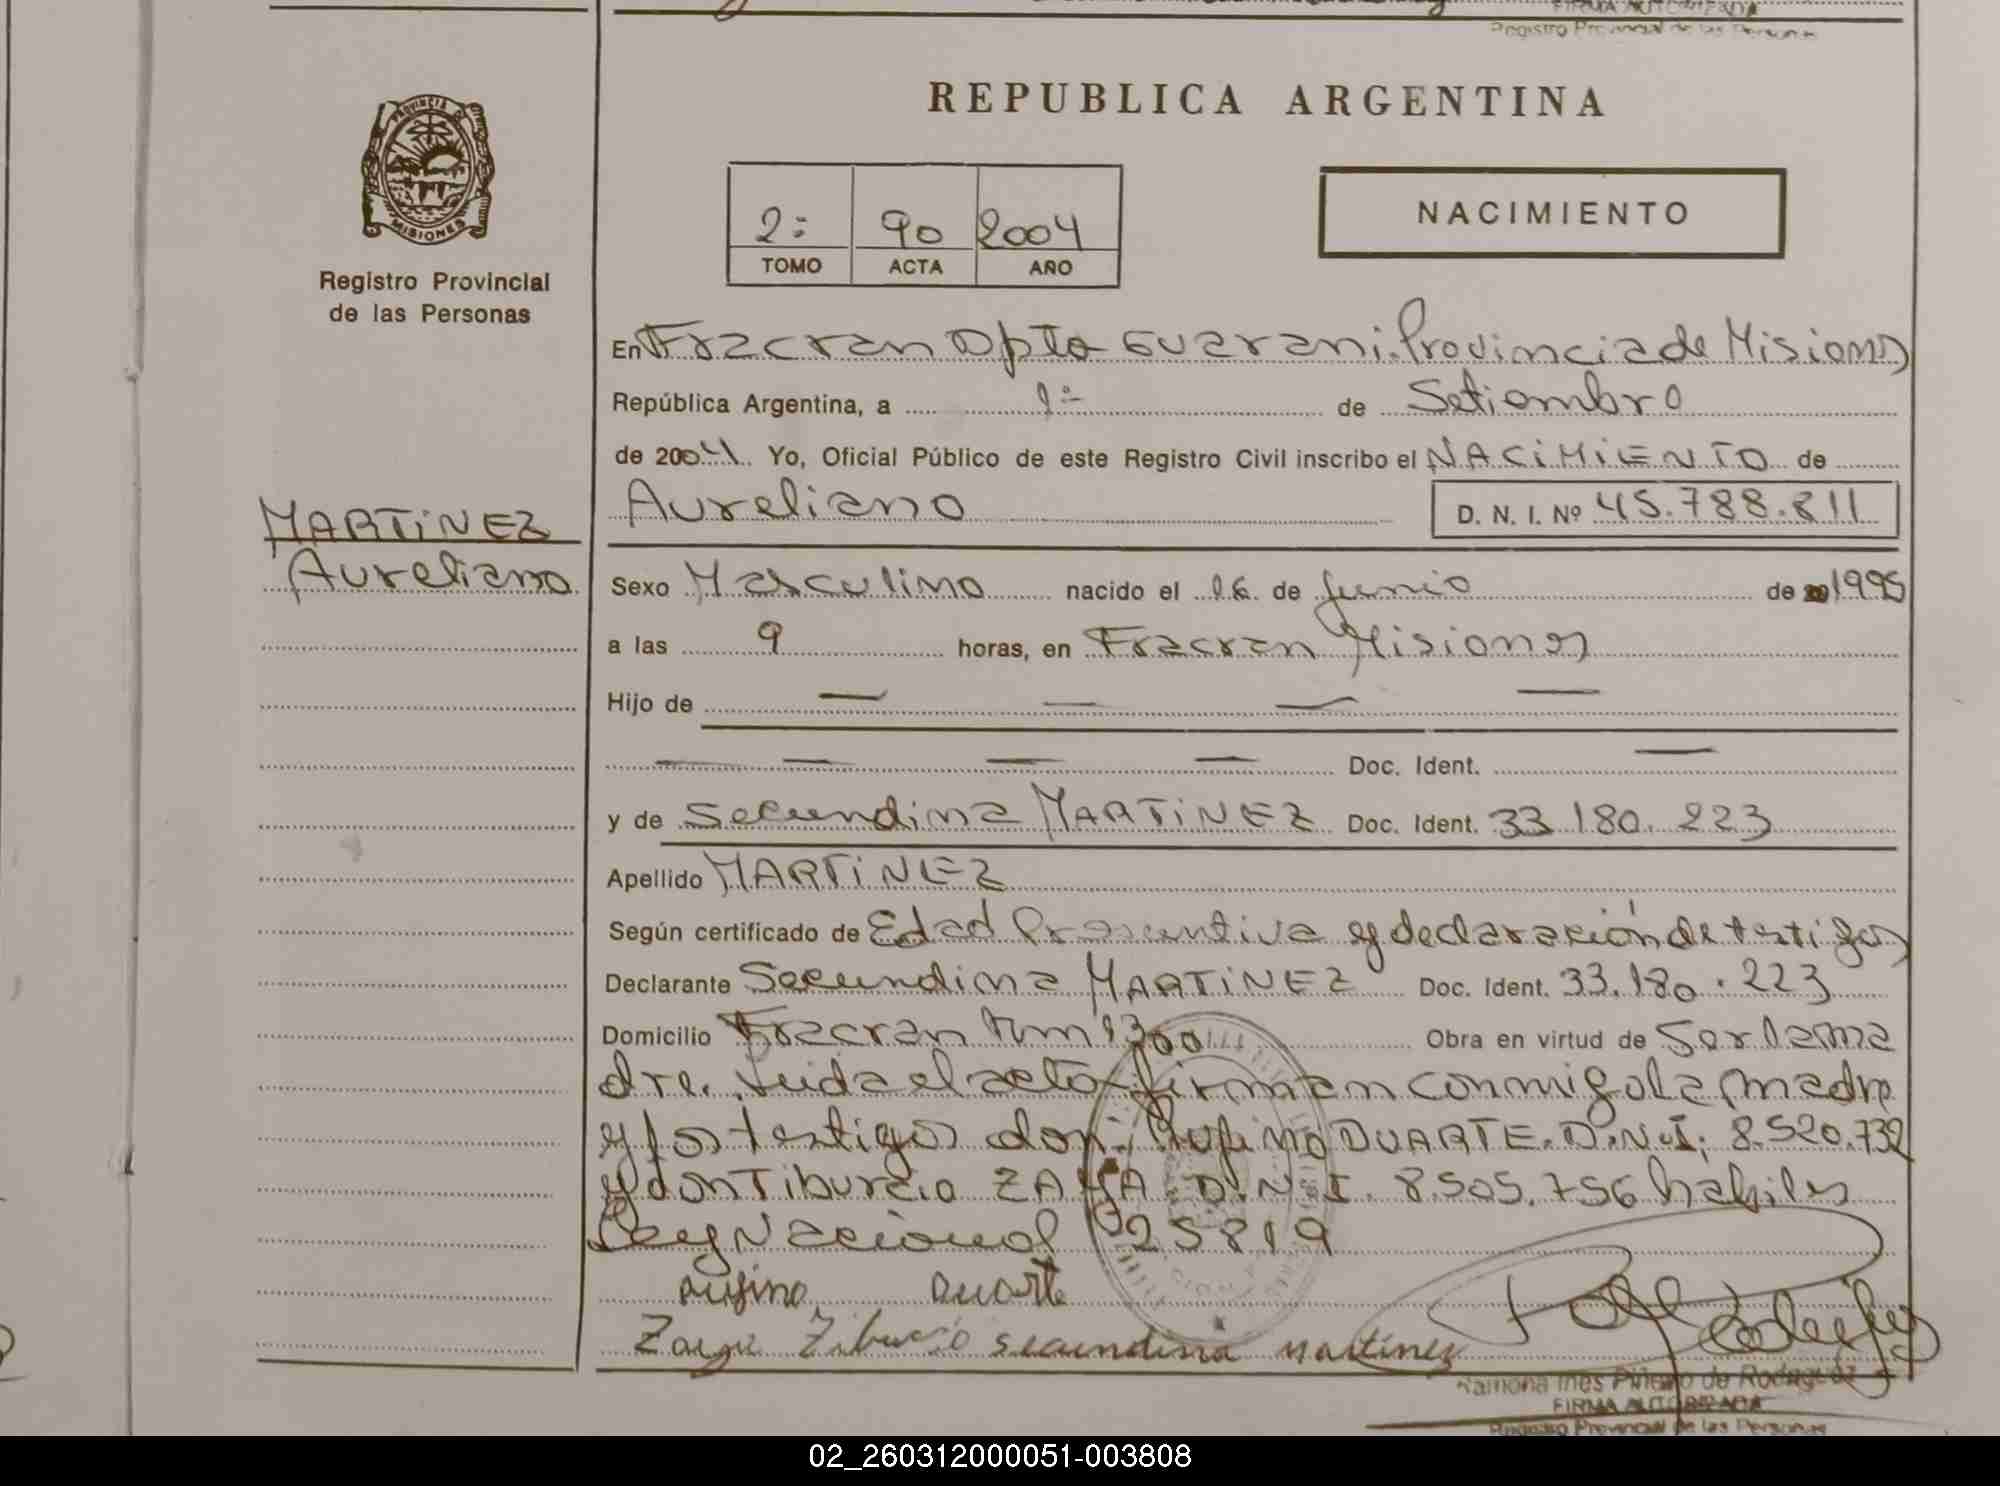 FIRMA AUTORIZADA
Registro Provincial de las Personas
REPUBLICA ARGENTINA
PROVINCIA
MISIONES
Registro Provincial
de las Personas
2º 90 2004
TOMO ACTA AÑO
NACIMIENTO
En Fracran Dpto Guarani. Provincia de Misiones
República Argentina, a 1º de Setiembre
de 2004 Yo, Oficial Público de este Registro Civil inscribo el NACIMIENTO de
Aureliano D. N. I. Nº 45.788.811
MARTINEZ
Aureliano
Sexo Masculino nacido el 16 de Junio de 1995
a las 9 horas, en Fracran Misiones
Hijo de — — — —
— — — — Doc. Ident. —
y de Secundina MARTINEZ Doc. Ident. 33 180. 223
Apellido MARTINEZ
Según certificado de Edad Presuntiva y declaración de testigos
Declarante Secundina MARTINEZ Doc. Ident. 33.180.223
Domicilio Fracran Km 1300 Obra en virtud de Ser la ma
dre. Leida el acto firman conmigo la madre
y los testigos don: Rufino DUARTE. D.N.I. 8.520.732
y don Tiburcio ZAYA D.N.I. 8.505.756 habiles
Ley Nacional 25819
rufino Duarte
Zaya Tiburcio secundina martinez
Ramona Ines Piñeiro de Rodriguez
FIRMA AUTORIZADA
Registro Provincial de las Personas
02_260312000051-003808